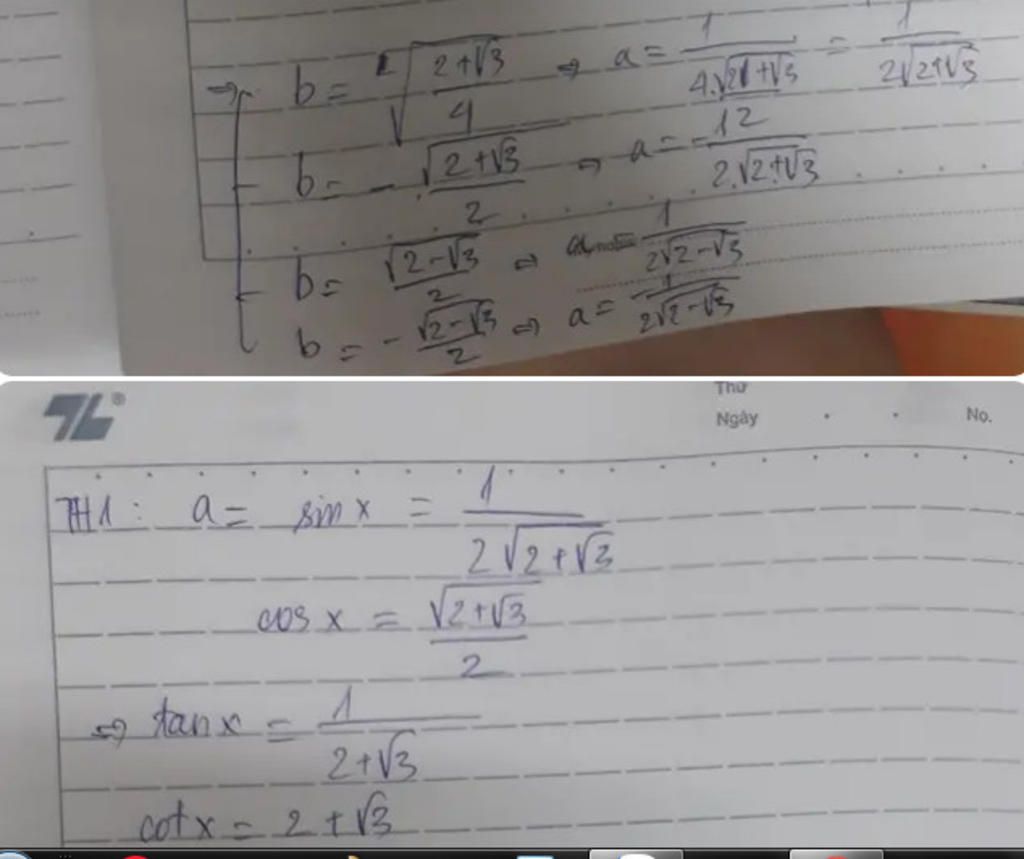 ⇒ b = √((2+√3)/4) ⇒ a = 1/(4.√(2+√3)) = 1/(2√(2+√3))
b = -√(2+√3)/2 ⇒ a = -12/(2.√(2+√3))
b = √(2-√3)/2 ⇒ = 1/(2√(2-√3))
b = -√(2-√3)/2 ⇒ a = 1/(2√(2-√3))
TL®
Thứ
Ngày . . No.
TH1: a = sin x = 1/(2√(2+√3))
cos x = √(2+√3)/2
⇒ tan x = 1/(2+√3)
cot x = 2+√3